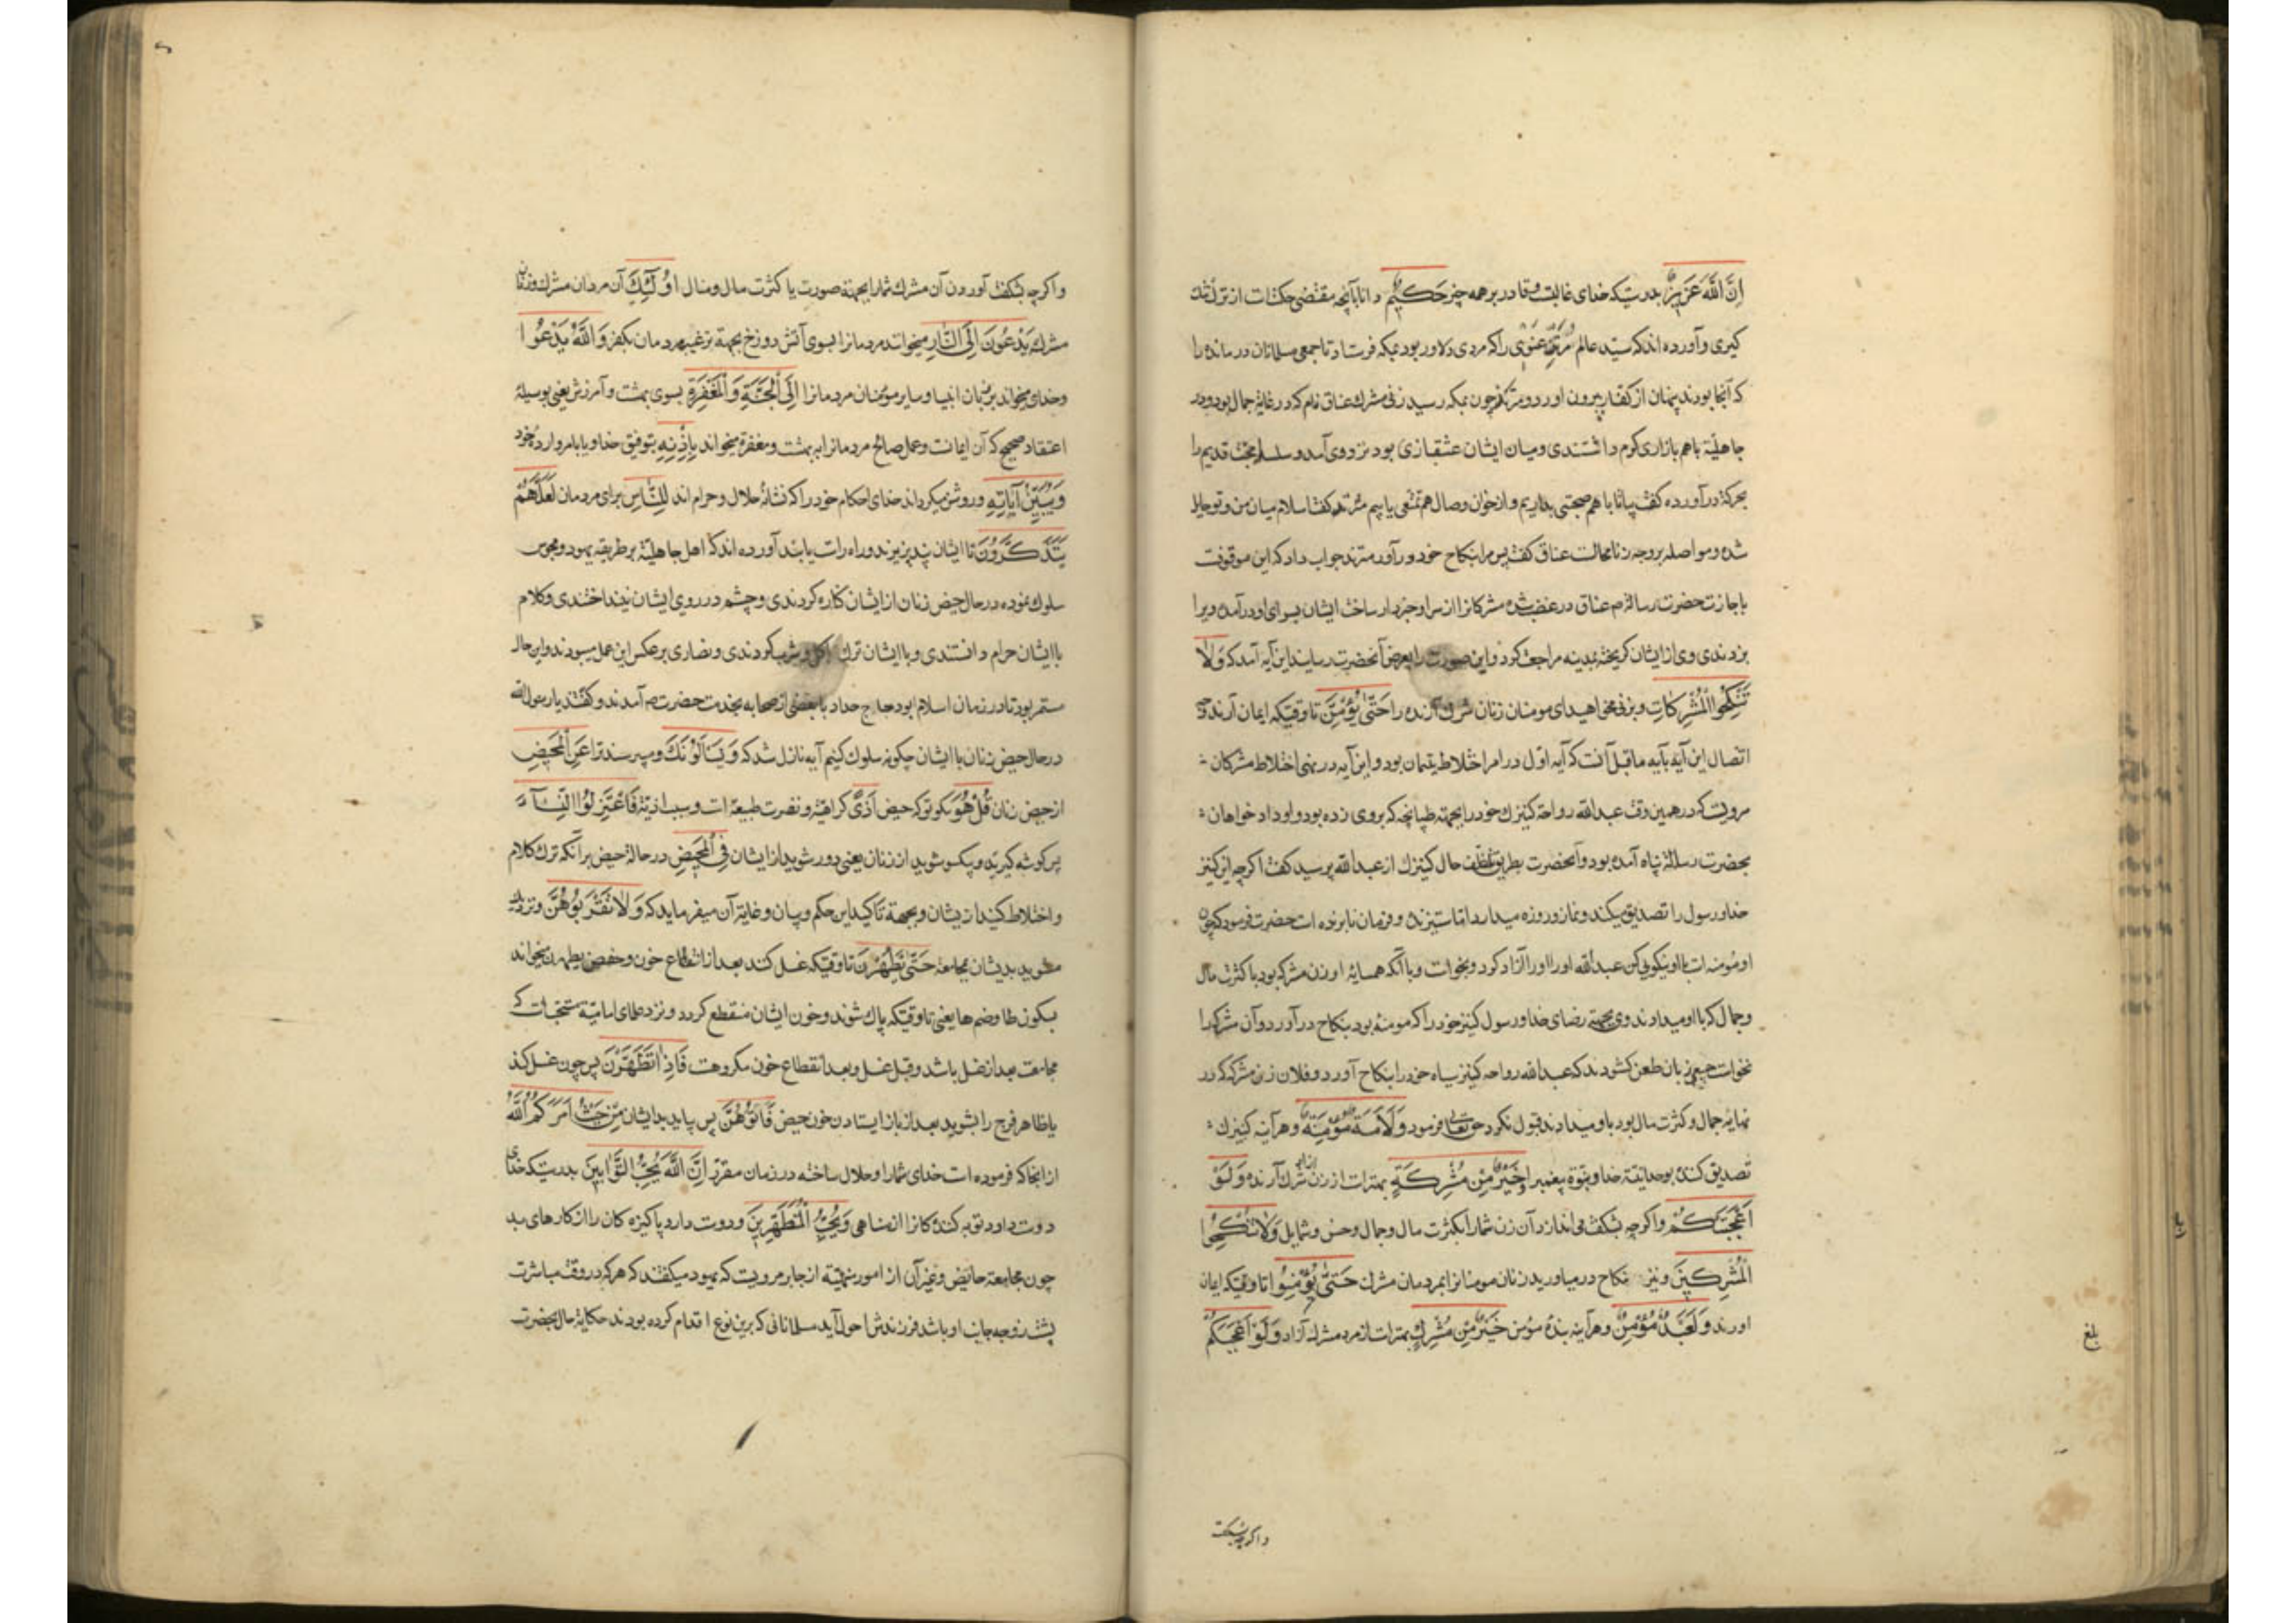 اِنَّ اللّٰهَ عَزیزٌ بدرستیکه خدای غالبست و قادر بر همه چیز حَکیمٌ دانا بآنچه مقتضی حکمتست از
کیری و آورده اند که سید عالم مرثد غنوی را که مردی دلاور بود بمکه فرستاد تا جمعی مسلمانان درمانده را
که آنجا بودند پنهان از کفار بیرون اورد و مرثد چون بمکه رسید زنی مشرک عناق نام که در غایة جمال بود و در
جاهلیة باهم بازاری کرم داشتندی و میان ایشان عشقبازی بود نزد وی آمد و سلسلهٔ محبت قدیم را
بحرکة درآورده کفت بیا تا باهم صحبتی بداریم و از خوان وصال هم تمتعی یابیم مرثد کفت اسلام میان من و تو حایل
شده و مواصله بر وجه زنا محالست عناق کفت پس مرا بنکاح خود درآور مرثد جواب داد که این موقوفست
باجازت حضرت رسالة م عناق در غضب شده مشرکانرا از سر او خبردار ساخت ایشان بسرای او درآمده ویرا
بزدندی وی از ایشان کریخته بمدینه مراجعت کرد و این صورت را بعرض آنحضرت رسانید این آیه آمد که وَلَا
تَنْکِحُوا الْمُشْرِکَاتِ و بزنی مخواهید ای مومنان زنان شرک آرنده را حَتّٰی یُؤْمِنَّ تا وقتیکه ایمان آرند و
اتصال این آیه بآیه ماقبل آنست که آیه اول در امر اختلاط یتیمان بود و این آیه در نهی اختلاط مشرکان
مرویست که در همین وقت عبدالله رواحة کنیزک خود را بجهته طپانچه که بروی زده بود و او دادخواهان
بحضرت رسالة پناه آمده بود و آنحضرت بطریق تلطف حال کنیزک از عبدالله پرسید کفت اکرچه این کنیز
خدا و رسول را تصدیق میکند و نماز و روزه میدارد اما ستیزنده و فرمان نابرنده است حضرت فرمود که چون
او مومنه است با او نیکویی کن عبدالله او را آزاد کرد و بخواست و با آنکه همسایهٔ او زن مشرکه بود با کثرت مال
و جمال که با او میدادند وی بجهتة رضای خدا و رسول کنیز خود را که مومنه بود بنکاح درآورد و آن مشرکه را
نخواست جمعی زبان طعن کشودند که عبدالله رواحه کنیز سیاه خود را بنکاح آورد و فلان زن مشرکه که در
نهایة جمال و کثرت مال بود باو میدادند قبول نکرد حق تعالی فرمود وَلَاَمَةٌ مُؤْمِنَةٌ و هرآینه کنیزک
تصدیق کننده بوحدانیة خدا و نبوة پیغمبر او خَیْرٌ مِنْ مُشْرِکَةٍ بهتر است از زن شرک آرنده وَلَوْ
اَعْجَبَتْکُمْ و اکرچه بشکفت می اندازد آن زن شمارا بکثرت مال و جمال و حسن و شمایل وَلَا تُنْکِحُوا
الْمُشْرِکینَ و نیز نکاح درمیاورید زنان مومنانرا بمردمان مشرک حَتّٰی یُؤْمِنُوا تا وقتیکه ایمان
اورند وَلَعَبْدٌ مُؤْمِنٌ و هرآینه بندهٔ مؤمن خَیْرٌ مِنْ مُشْرِكٍ بهتر است از مرد مشرک آزاد وَلَوْ اَعْجَبَکُمْ
بلغ
واکرچه بشکفت
واکرچه بشکفت آورد آن مشرک شمارا بجهتة صورت یا کثرت مال و منال اُولٰٓئِكَ آن مردان مشرک و زنان
مشرکه یَدْعُونَ اِلَی النَّارِ میخوانند مردمانرا بسوی آتش دوزخ بجهة ترغیب مردمان بکفر وَاللّٰهُ یَدْعُوا
و خدای میخواند بر زبان انبیا و سایر مومنان مردمانرا اِلَی الْجَنَّةِ وَالْمَغْفِرَةِ بسوی بهشت و آمرزش یعنی بوسیلهٔ
اعتقاد صحیح که آن ایمانست و عمل صالح مردمانرا به بهشت و مغفرة میخواند بِاِذْنِهِ بتوفیق خدا و یا بامر و ارادهٔ خود
وَیُبَیِّنُ آیَاتِهِ و روشن میکرداند خدای احکام خود را که نشانهٔ حلال و حرام اند لِلنَّاسِ برای مردمان لَعَلَّهُمْ
یَتَذَکَّرُونَ تا ایشان پند پذیرند و راه راست یابند آورده اند که اهل جاهلیة بر طریقه یهود و مجوس
سلوک نموده در حال حیض زنان از ایشان کناره کردندی و چشم در روی ایشان نینداختندی و کلام
با ایشان حرام دانستندی و با ایشان ترک اکل و شرب کردندی و نصاری برعکس این عمل مینمودند و این حال
مستمر بود تا در زمان اسلام ابودحداح با بعضی از صحابه بخدمت حضرت ص آمدند و کفتند یا رسول الله
در حال حیض زنان با ایشان چکونه سلوک کنیم آیه نازل شد که وَیَسْاَلُونَكَ و میپرسند ترا عَنِ الْمَحیضِ
از حیض زنان قُلْ هُوَ بکو تو که حیض اَذًی کراهیة و نفرت طبیعة است و سبب اذیتة فَاعْتَزِلُوا النِّسَآءَ
پس کوشه کیرید و یکسو شوید از زنان یعنی دور شوید از ایشان فِی الْمَحیضِ در حالة حیض بر آنکه ترک کلام
و اختلاط کنید از یشان و بجهة تأکید این حکم و بیان و غایة آن میفرماید که وَلَا تَقْرَبُوهُنَّ و نزدیک
مشوید بدیشان بمجامعة حَتّٰی یَطْهُرْنَ تا وقتیکه غسل کنند بعد از انقطاع خون و حفص یطهرن میخواند
بسکون طا و ضم ها یعنی تا وقتیکه پاک شوند و خون ایشان منقطع کردد و نزد علمای امامیّة مستحبّست که
مجامعت بعد از غسل باشد و قبل غسل و بعد انقطاع خون مکروهست فَاِذَا تَطَهَّرْنَ پس چون غسل کنند
یا ظاهر فرج را بشویند بعد از باز ایستادن خون حیض فَاْتُوهُنَّ پس بیایید بدیشان مِنْ حَیْثُ اَمَرَکُمُ اللّٰهُ
از انجا که فرموده است خدای شمارا و حلال ساخته در زمان مقرر اِنَّ اللّٰهَ یُحِبُّ التَّوَّابینَ بدرستیکه خدای
دوست دارد توبه کنندکانرا از مناهی وَیُحِبُّ الْمُتَطَهِّرینَ و دوست دارد پاکیزه کان را از کارهای بد
چون مجامعة حایض و غیر آن از امور منهیّه از جابر مرویست که یهود میکفتند که هرکه در وقت مباشرت
پشت زوجه بجانب او باشد فرزندش احول آید مسلمانانی که برین نوع اقدام کرده بودند حکایة حال بحضرت